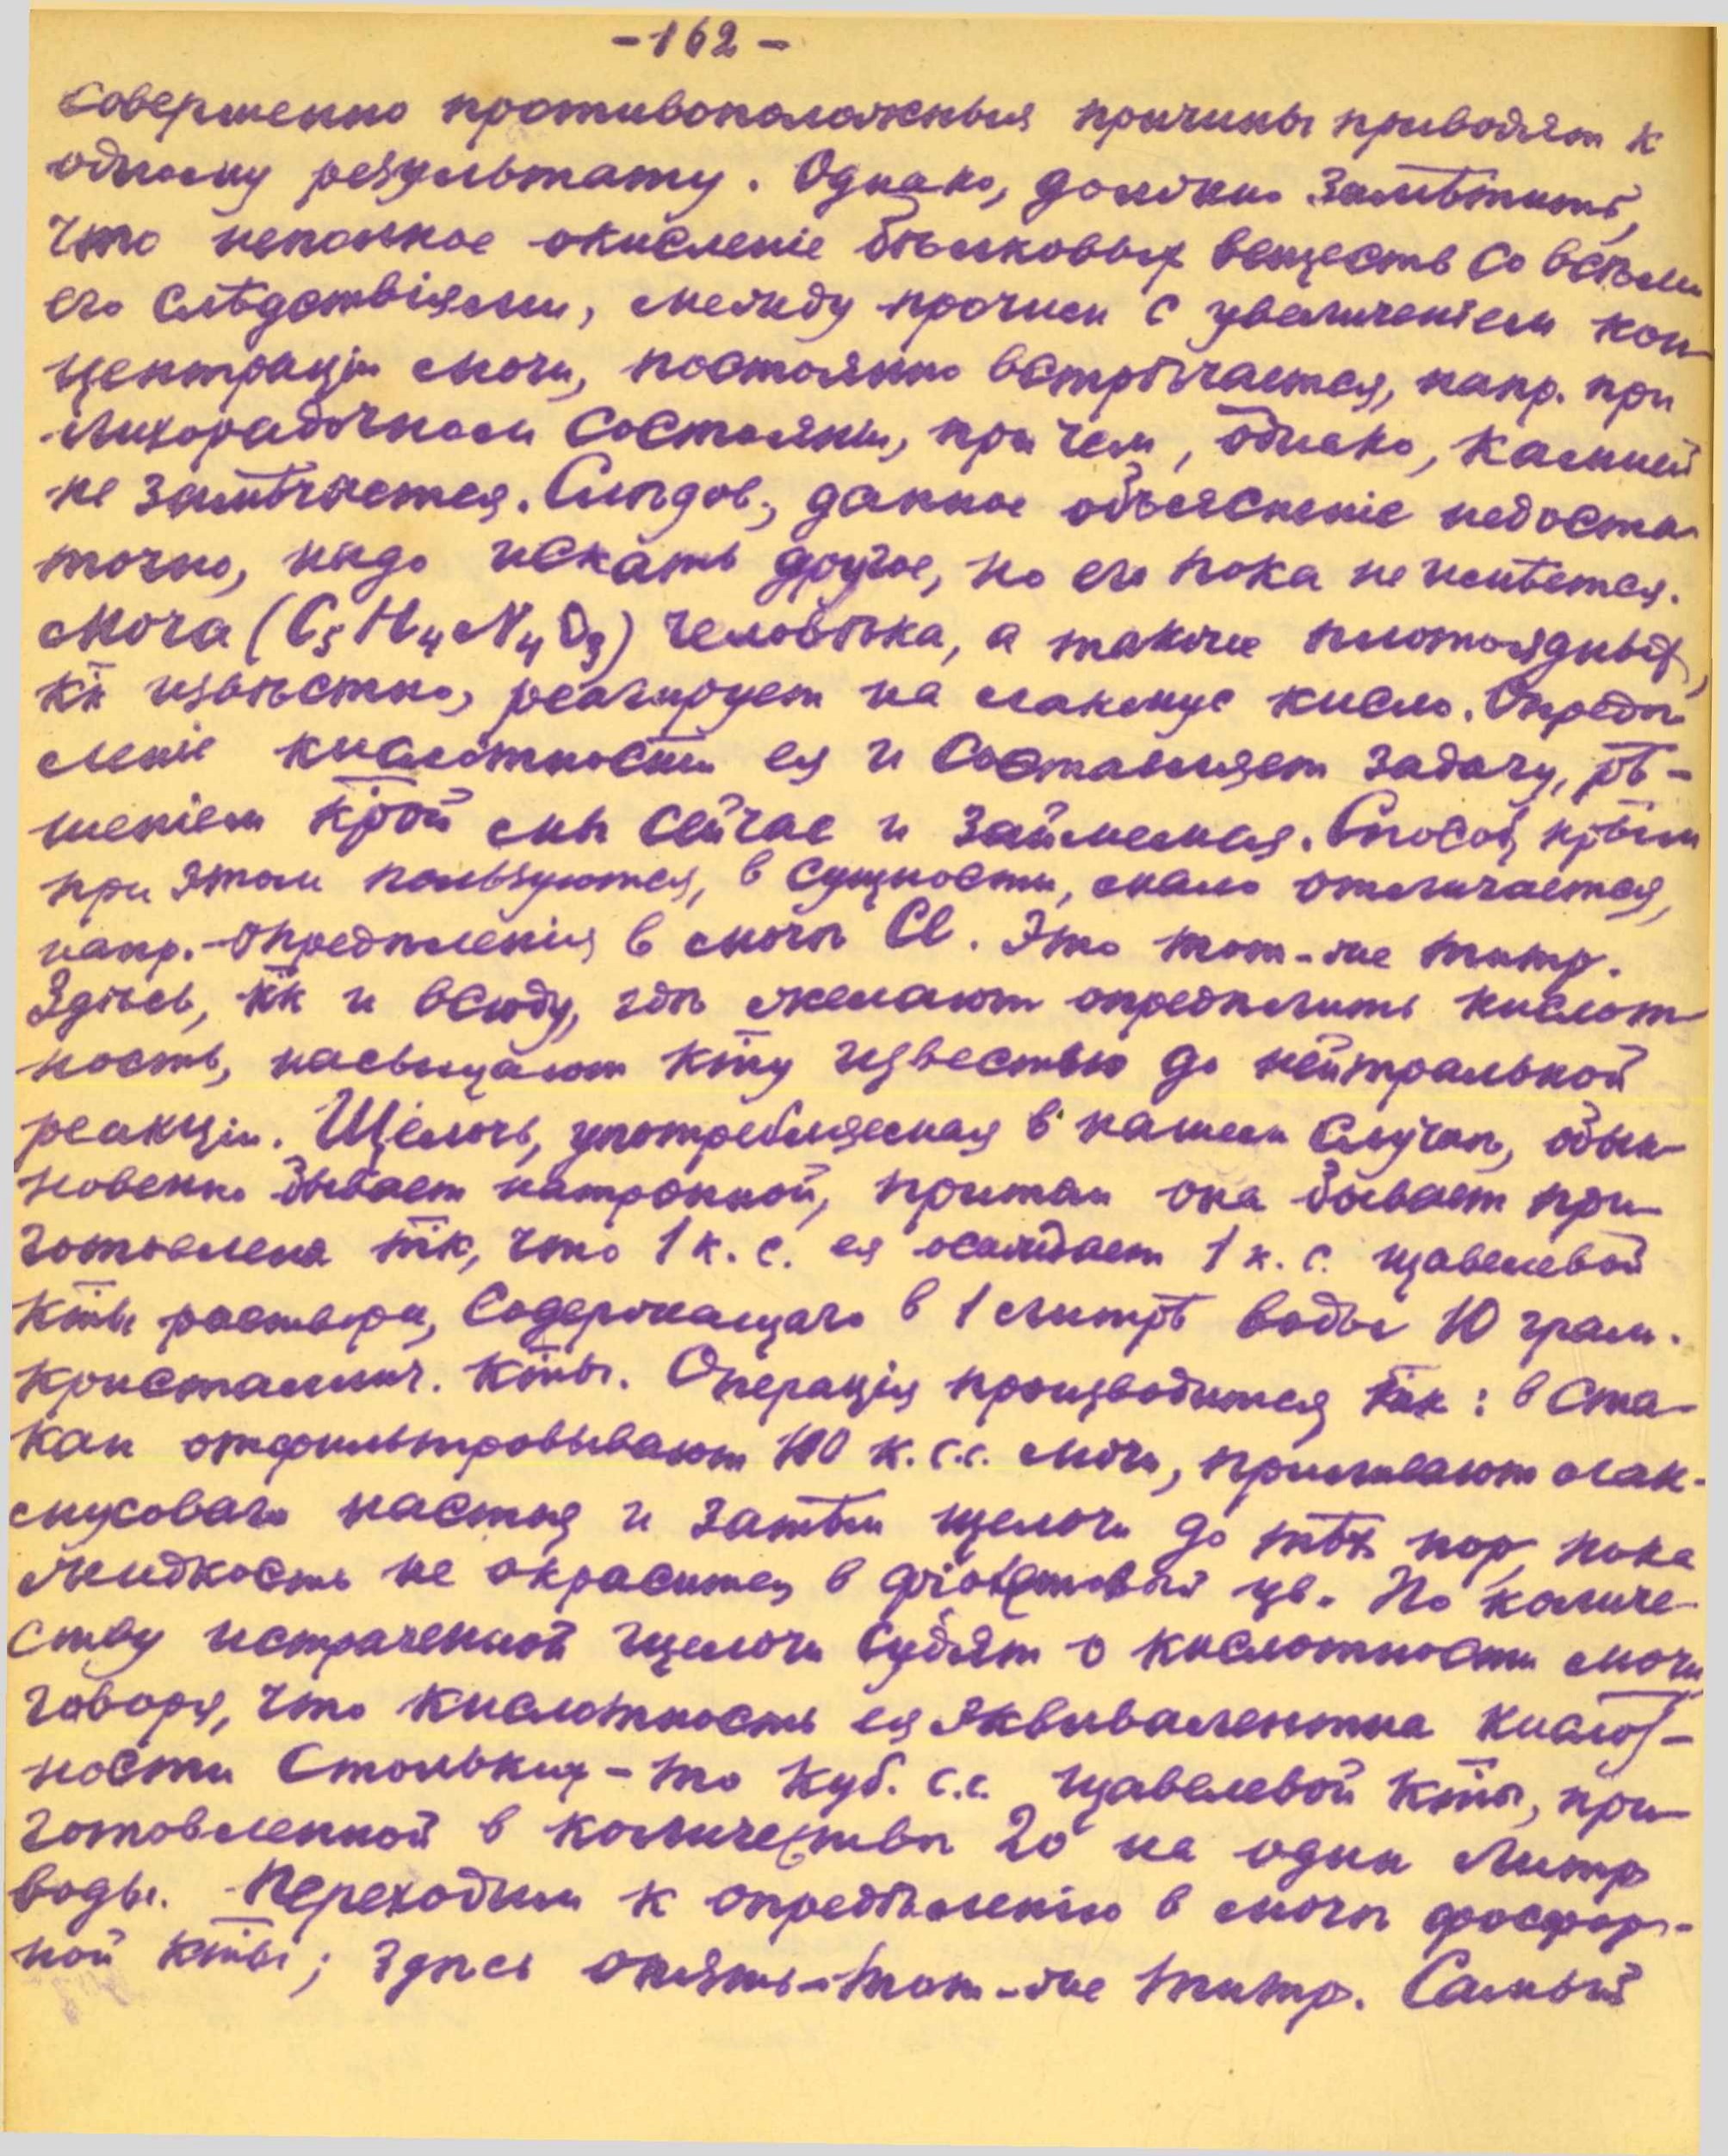 -162-
совершенно противоположныя причины приводят к
одному результату. Однако, должно замѣтить,
что неполное окисленіе бѣлковых веществ со всѣми
его слѣдствіями, между прочим с увеличеніем кон-
центраціи мочи, постоянно встрѣчается, напр. при
лихорадочном состояніи, при чем, однако, камней
не замѣчается. Слѣдов., данное объясненіе недоста-
точно, надо искать другое, но его пока не имѣется.
Моча (C5H4N4O3) человѣка, а также плотоядных,
кк извѣстно, реагирует на лакмус кисло. Опредѣ-
леніе кислотности ея и составляет задачу, рѣ-
шеніем крой мы сейчас и займемся. Способ, крым
при этом пользуются, в сущности, мало отличается,
напр.-опредѣленія в мочѣ Cl. Это тот-же титр.
Здѣсь, кк и всюду, гдѣ желают опредѣлить кислот-
ность, насыщают кту известью до нейтральной
реакціи. Щелочь, употребляемая в нашем случаѣ, обык-
новенно бывает натронной, притом она бывает при-
готовлена тк, что 1 к. с. ея осаждает 1 к. с. щавелевой
кты раствора, содержащаго в 1 литрѣ воды 10 грам.
кристаллич. кты. Операція производится так: в ста-
кан отфильтровывают 100 к.с.с. мочи, приливают лак-
мусоваго настоя и затѣм щелочи до тѣх пор, пока
жидкость не окрасится в фіолетовый цв. По количе-
ству истраченной щелочи судят о кислотности мочи
говоря, что кислотность ея эквивалентна кислот-
ности стольких-то куб. с.с. щавелевой кты, при-
готовленной в количествѣ 20 на один литр
воды. Переходим к опредѣленію в мочѣ фосфор-
ной кты; здѣсь опять-тот-же титр. Самый